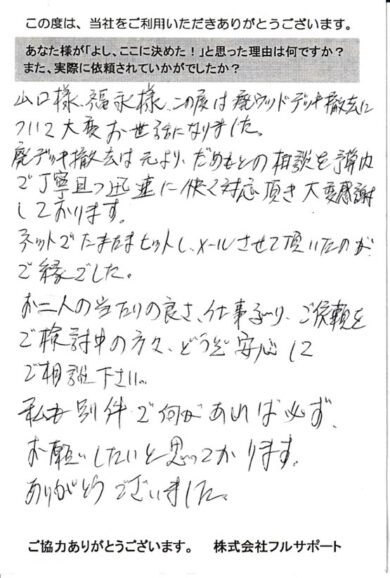 この度は、当社をご利用いただきありがとうございます。
あなた様が「よし、ここに決めた！」と思った理由は何ですか？
また、実際に依頼されていかがでしたか？
山口様、福永様、この度は廃ウッドデッキ撤去に
ついて大変お世話になりました。
廃デッキ撤去は元より、だめもとの相談を予算内
で丁寧且つ迅速に快く対応頂き大変感謝
しております。
ネットでたまたまヒットし、メールさせて頂いたのが
ご縁でした。
お二人の当たりの良さ、仕事ぶり、ご依頼を
ご検討中の方々、どうぞ安心して
ご相談下さい。
私も別件で何があれば必ず、
お願いしたいと思っております。
ありがとうございました。
ご協力ありがとうございます。 株式会社フルサポート